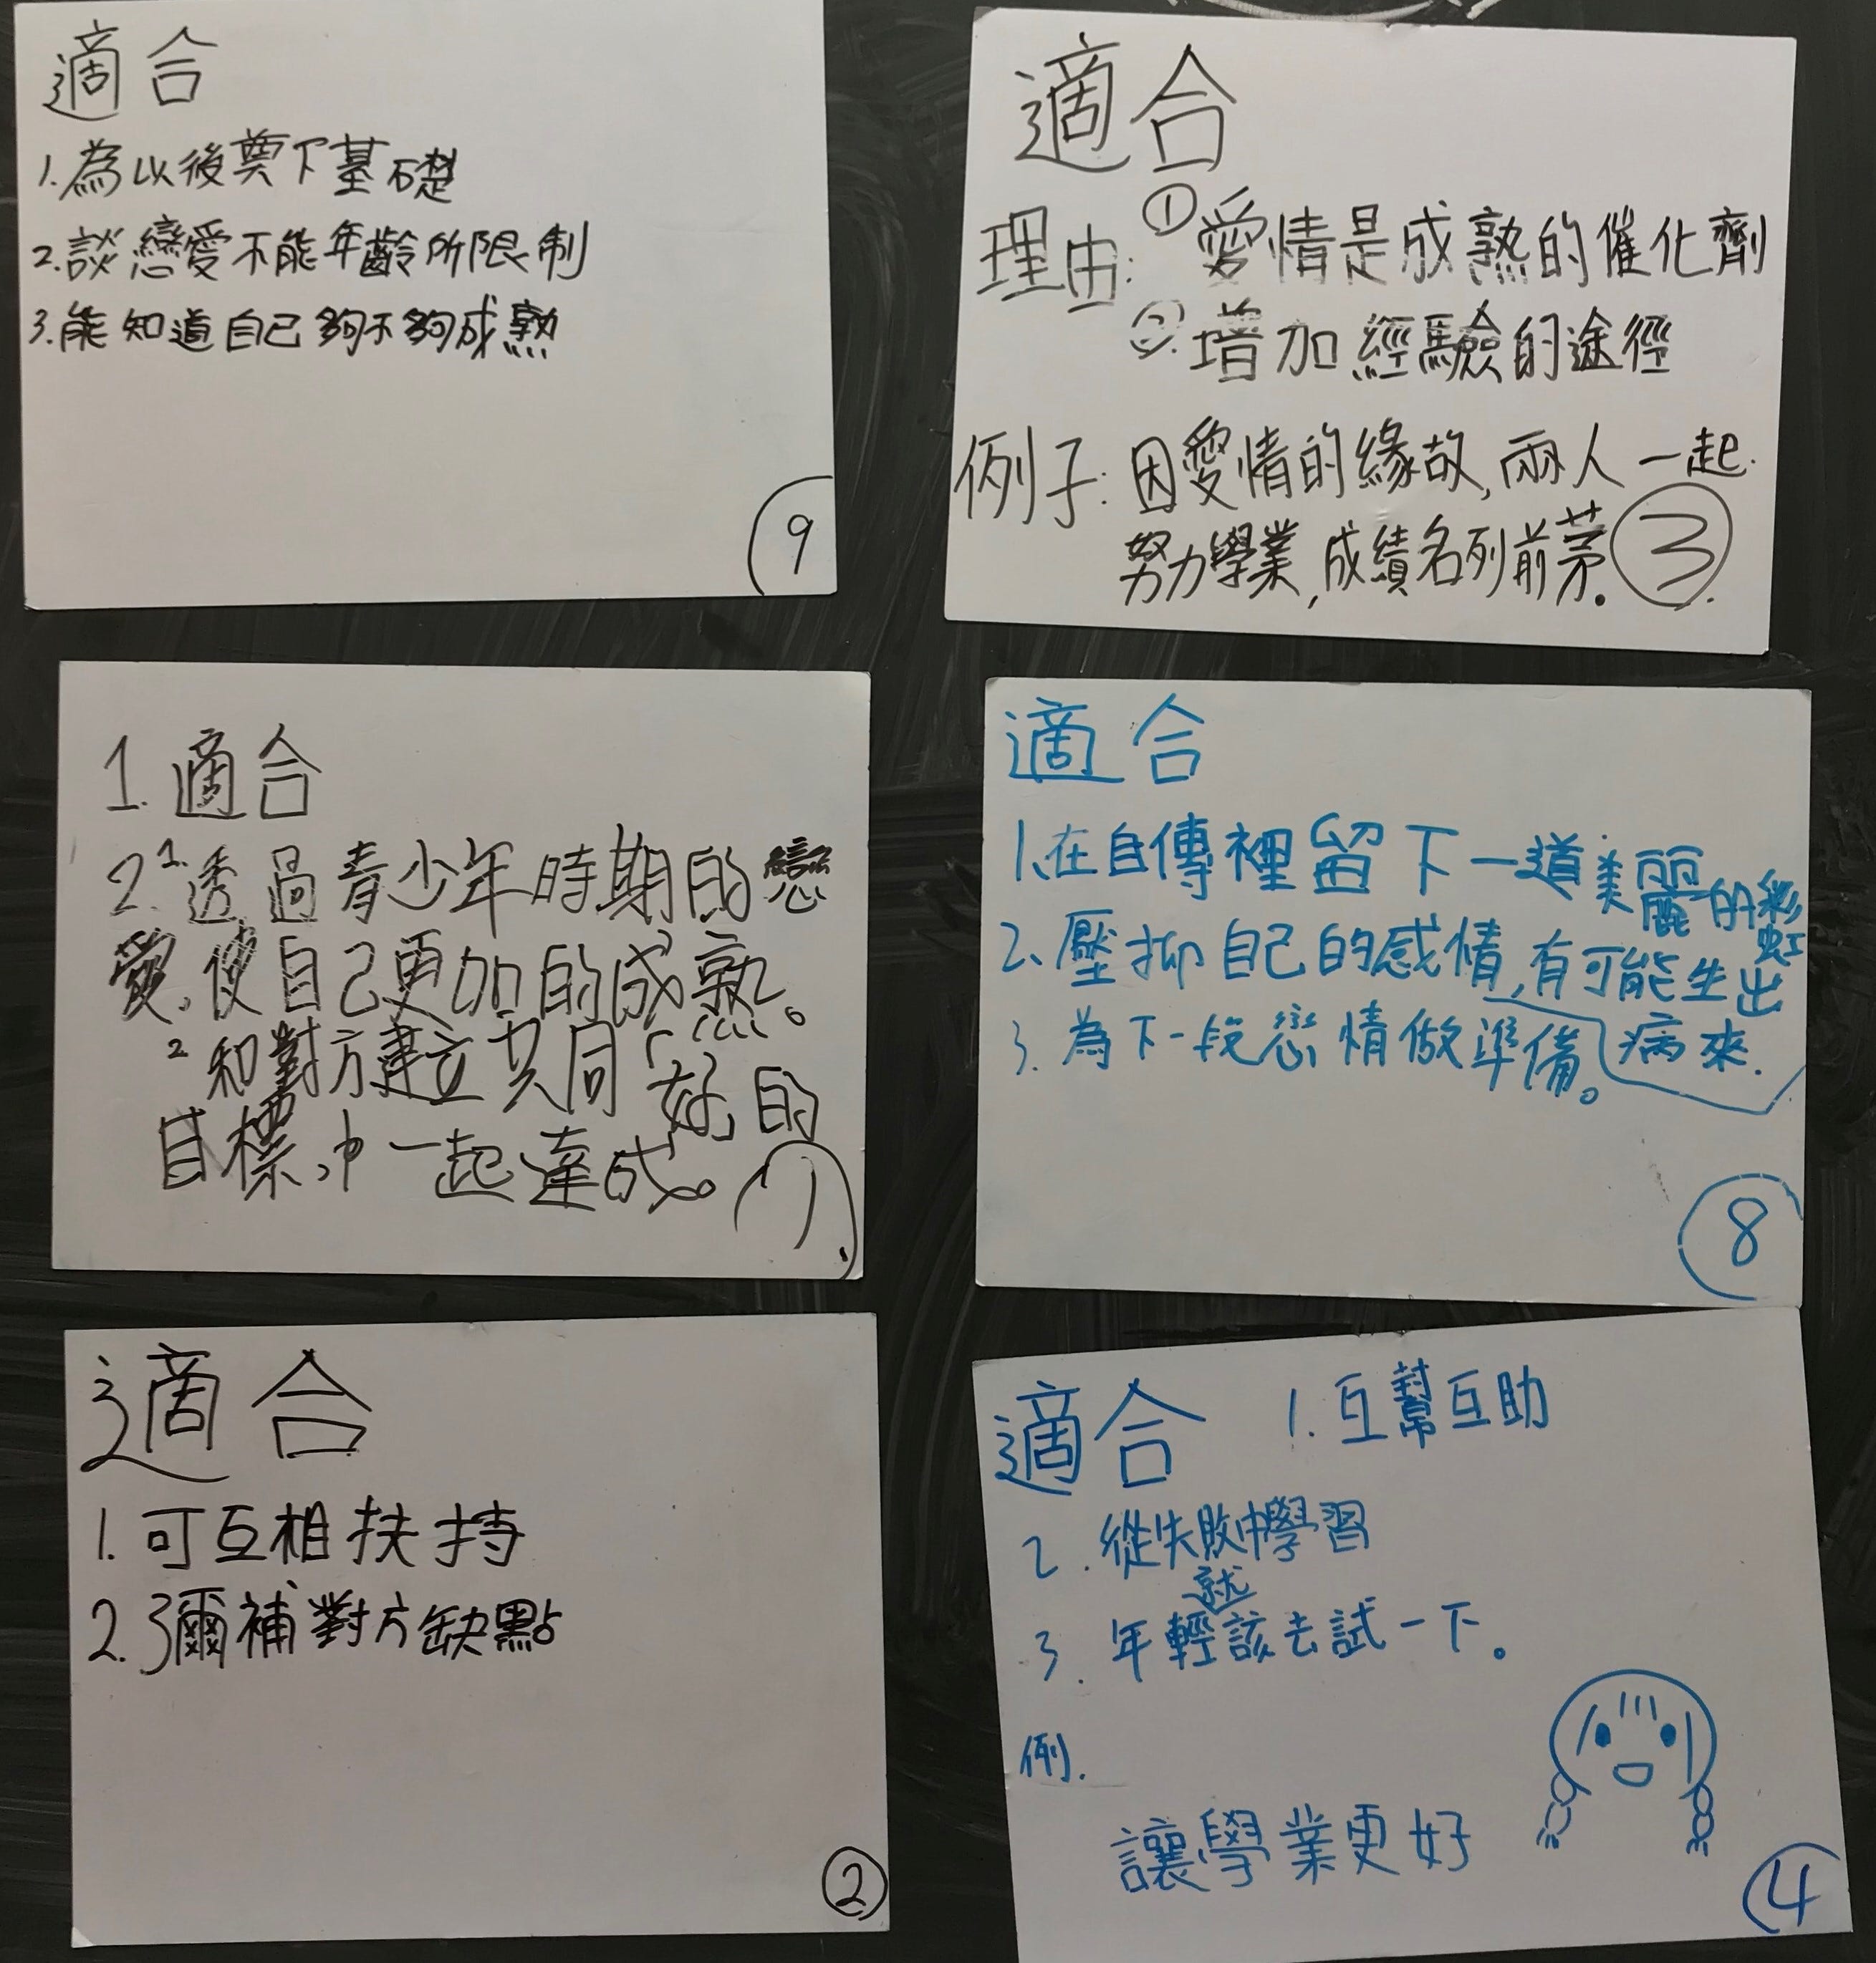 適合
1.為以後奠下基礎
2.談戀愛不能年齡所限制
3.能知道自己夠不夠成熟
9
適合
理由:①愛情是成熟的催化劑
②增加經驗的途徑
例子:因愛情的緣故,兩人一起
努力學業,成績名列前茅.
3
1.適合
2.1.透過青少年時期的戀
愛,使自己更加的成熟。
2 和對方建立共同「好」的
目標,一起達成。
7
適合
1.在自傳裡留下一道美麗的彩虹
2.壓抑自己的感情,有可能生出
病來.
3.為下一段戀情做準備。
8
適合
1.可互相扶持
2.彌補對方缺點
2
適合 1.互幫互助
2.從失敗中學習
3.年輕就該去試一下。
例.
讓學業更好
4